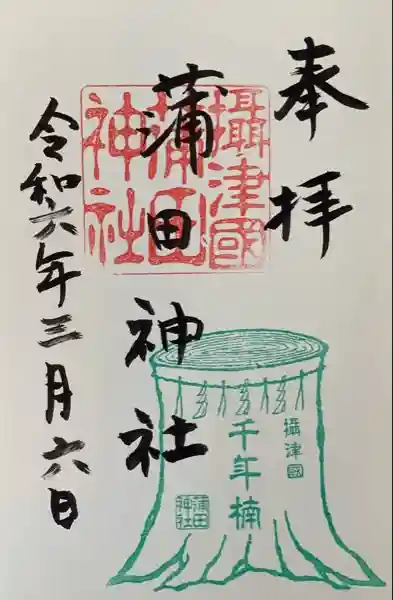 奉拝
攝津國
蒲田
神社
蒲田神社
令和六年三月六日
攝津國
千年楠
蒲田
神社